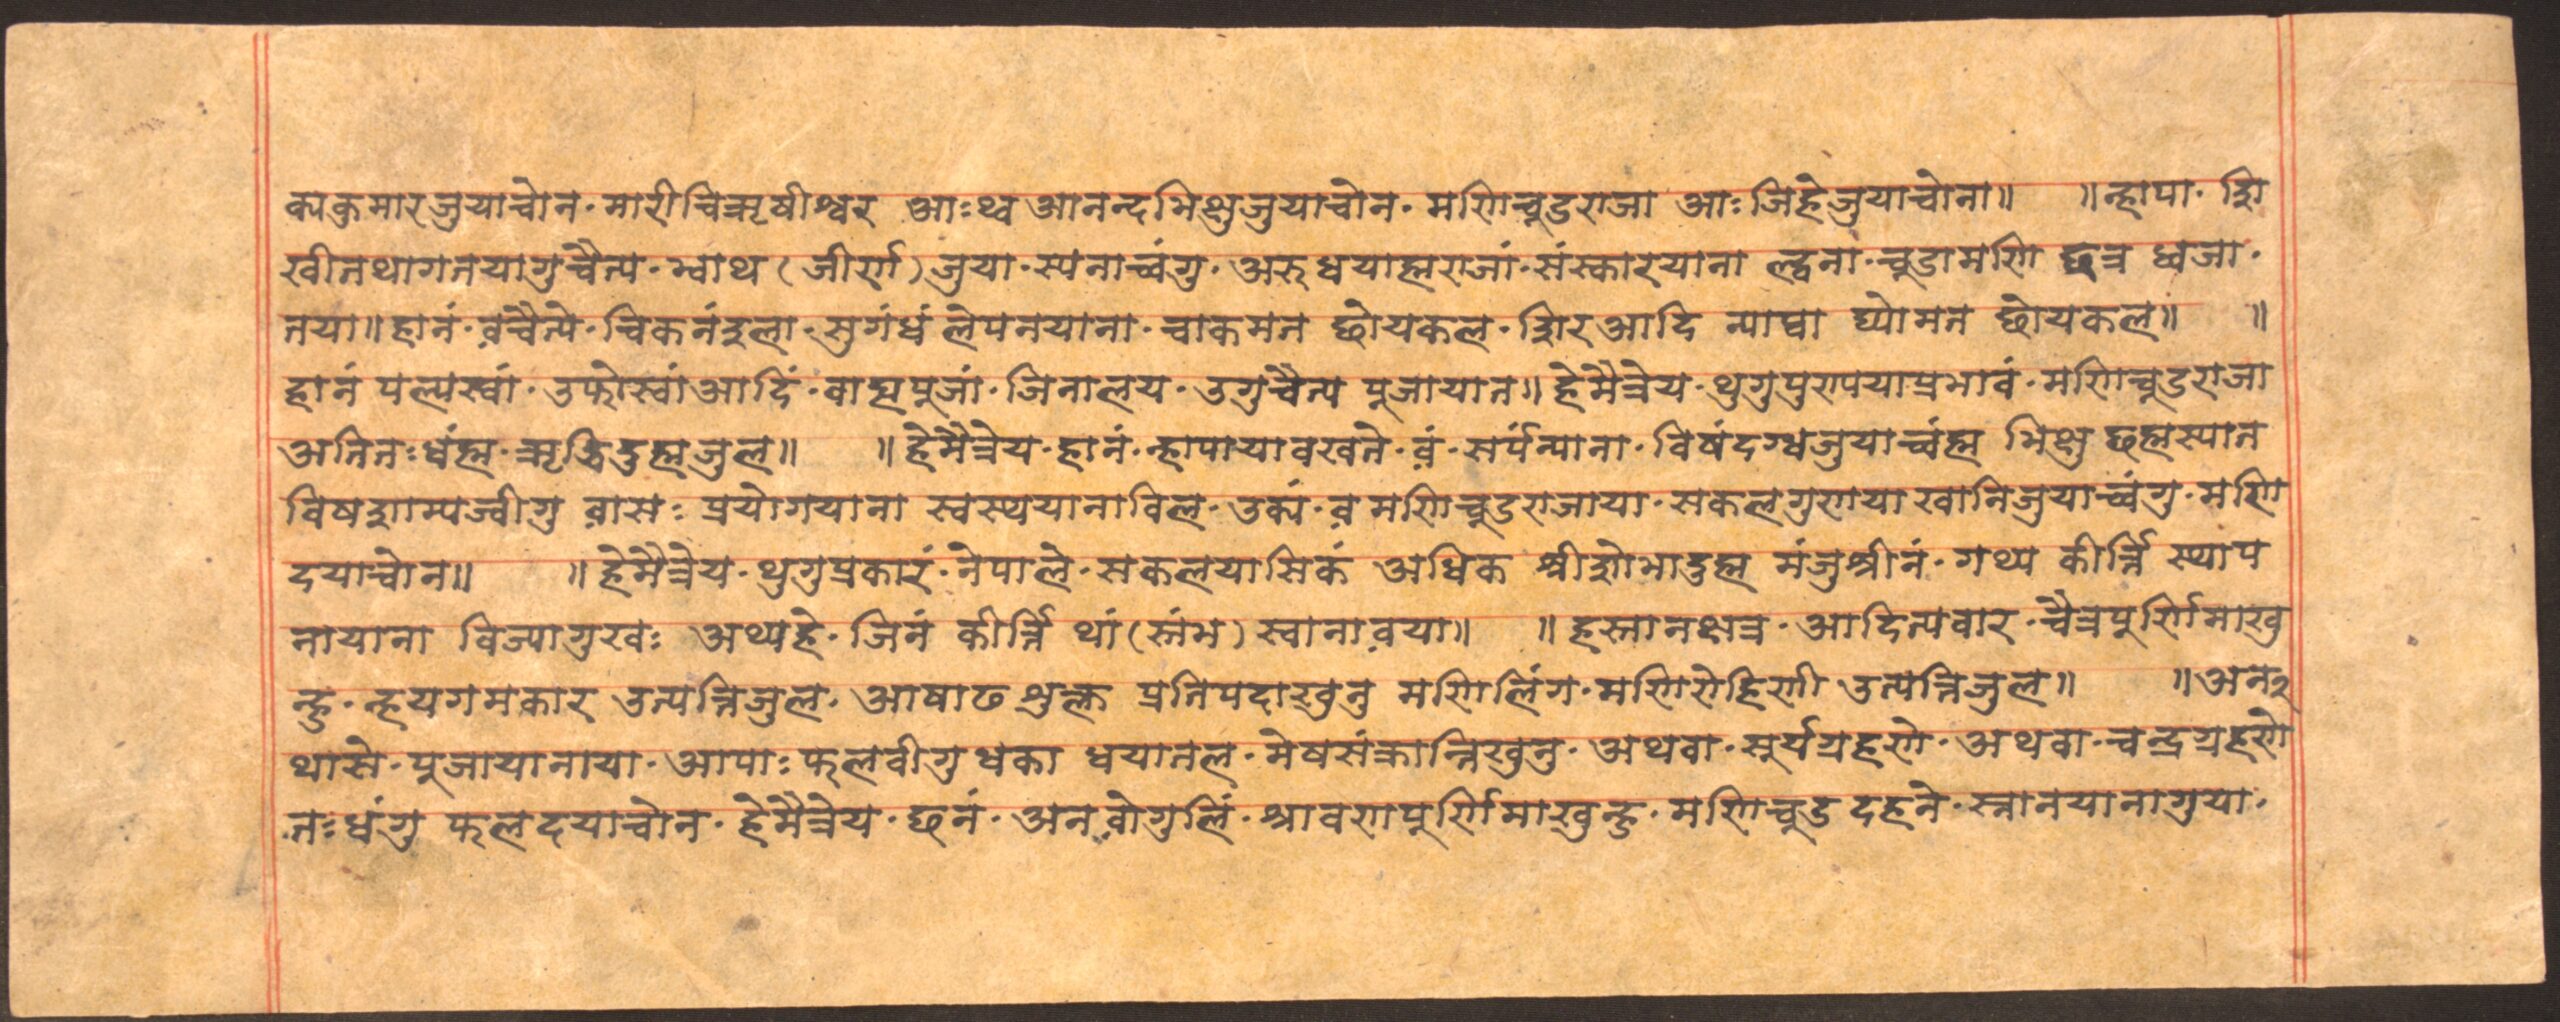 क्यकुमारजुयाचोन· मारीचिऋषीश्वर आःथ्व आनन्दभिक्षुजुयाचोन· मणिचूडराजा आः जिहेजुयाचोना॥ ॥न्हापा· शि
खीतथागतयागुचैत्य· भ्वाथ (जीर्ण) जुया· स्यनाच्वंगु· अरुधयाह्मराजां· संस्कारयाना ल्ह्वना· चूडामणि छत्र ध्वजा·
तया॥ हानं· व़चैत्ये· चिकनंइला· सुगंधं लेपनयाना· चाकमत छोयकल· शिरआदि न्याघ्वा घ्योमत छोयकल॥ ॥
हानं पल्यस्वां· उफोस्वांआदिं· वाह्यपूजां· जिनालय· उगुचैत्य पूजायात॥ हेमैत्रेय· थुगुपुण्यया प्रभावं· मणिचूडराजा
अतितःधंह्म· ऋद्धिदुह्मजुल॥ ॥हेमैत्रेय· हानं· न्हापायावखते· व़ं· सर्पंन्याना· विषंदग्धजुयाच्वंह्म भिक्षु छह्मस्यात
विषशाम्यज्वीगु व़ासः प्रयोगयाना स्वस्थयानाविल· उक्यं· व़ मणिचूडराजाया· सकलगुणया खानिजुयाच्वंगु· मणि
दयाचोन॥ ॥हेमैत्रेय· थुगुप्रकारं· नेपाले· सकलयासिकं अधिक श्रीशोभादुह्म मंजुश्रीनं· गथ्य कीर्त्ति स्थाप
नायाना विज्यागुखः अथ्यहे· जिनं कीर्त्ति थां (स्तंभ) स्वानाव़या॥ ॥हस्तानक्षत्र· आदित्यवार· चैत्रपूर्णिमाखु
न्हु· न्हयगमकार उत्पत्तिजुल· आषाढ शुल्क प्रतिपदाखुनु मणिलिंग· मणिरोहिणी उत्पत्तिजुल॥ ॥अनइ
थासे· पूजायानाया· आपाः फलवीगु धका धयातल· मेषसंक्रान्तिखुनु· अथवा· सूर्यग्रहणे· अथवा· चन्द्रग्रहणे
तःधंगु फलदयाचोन· हेमैत्रेय· छनं· अनव़ोगुलिं· श्रावणपूर्णिमाखुन्हु· मणिचूड दहने· स्नानयानागुया·